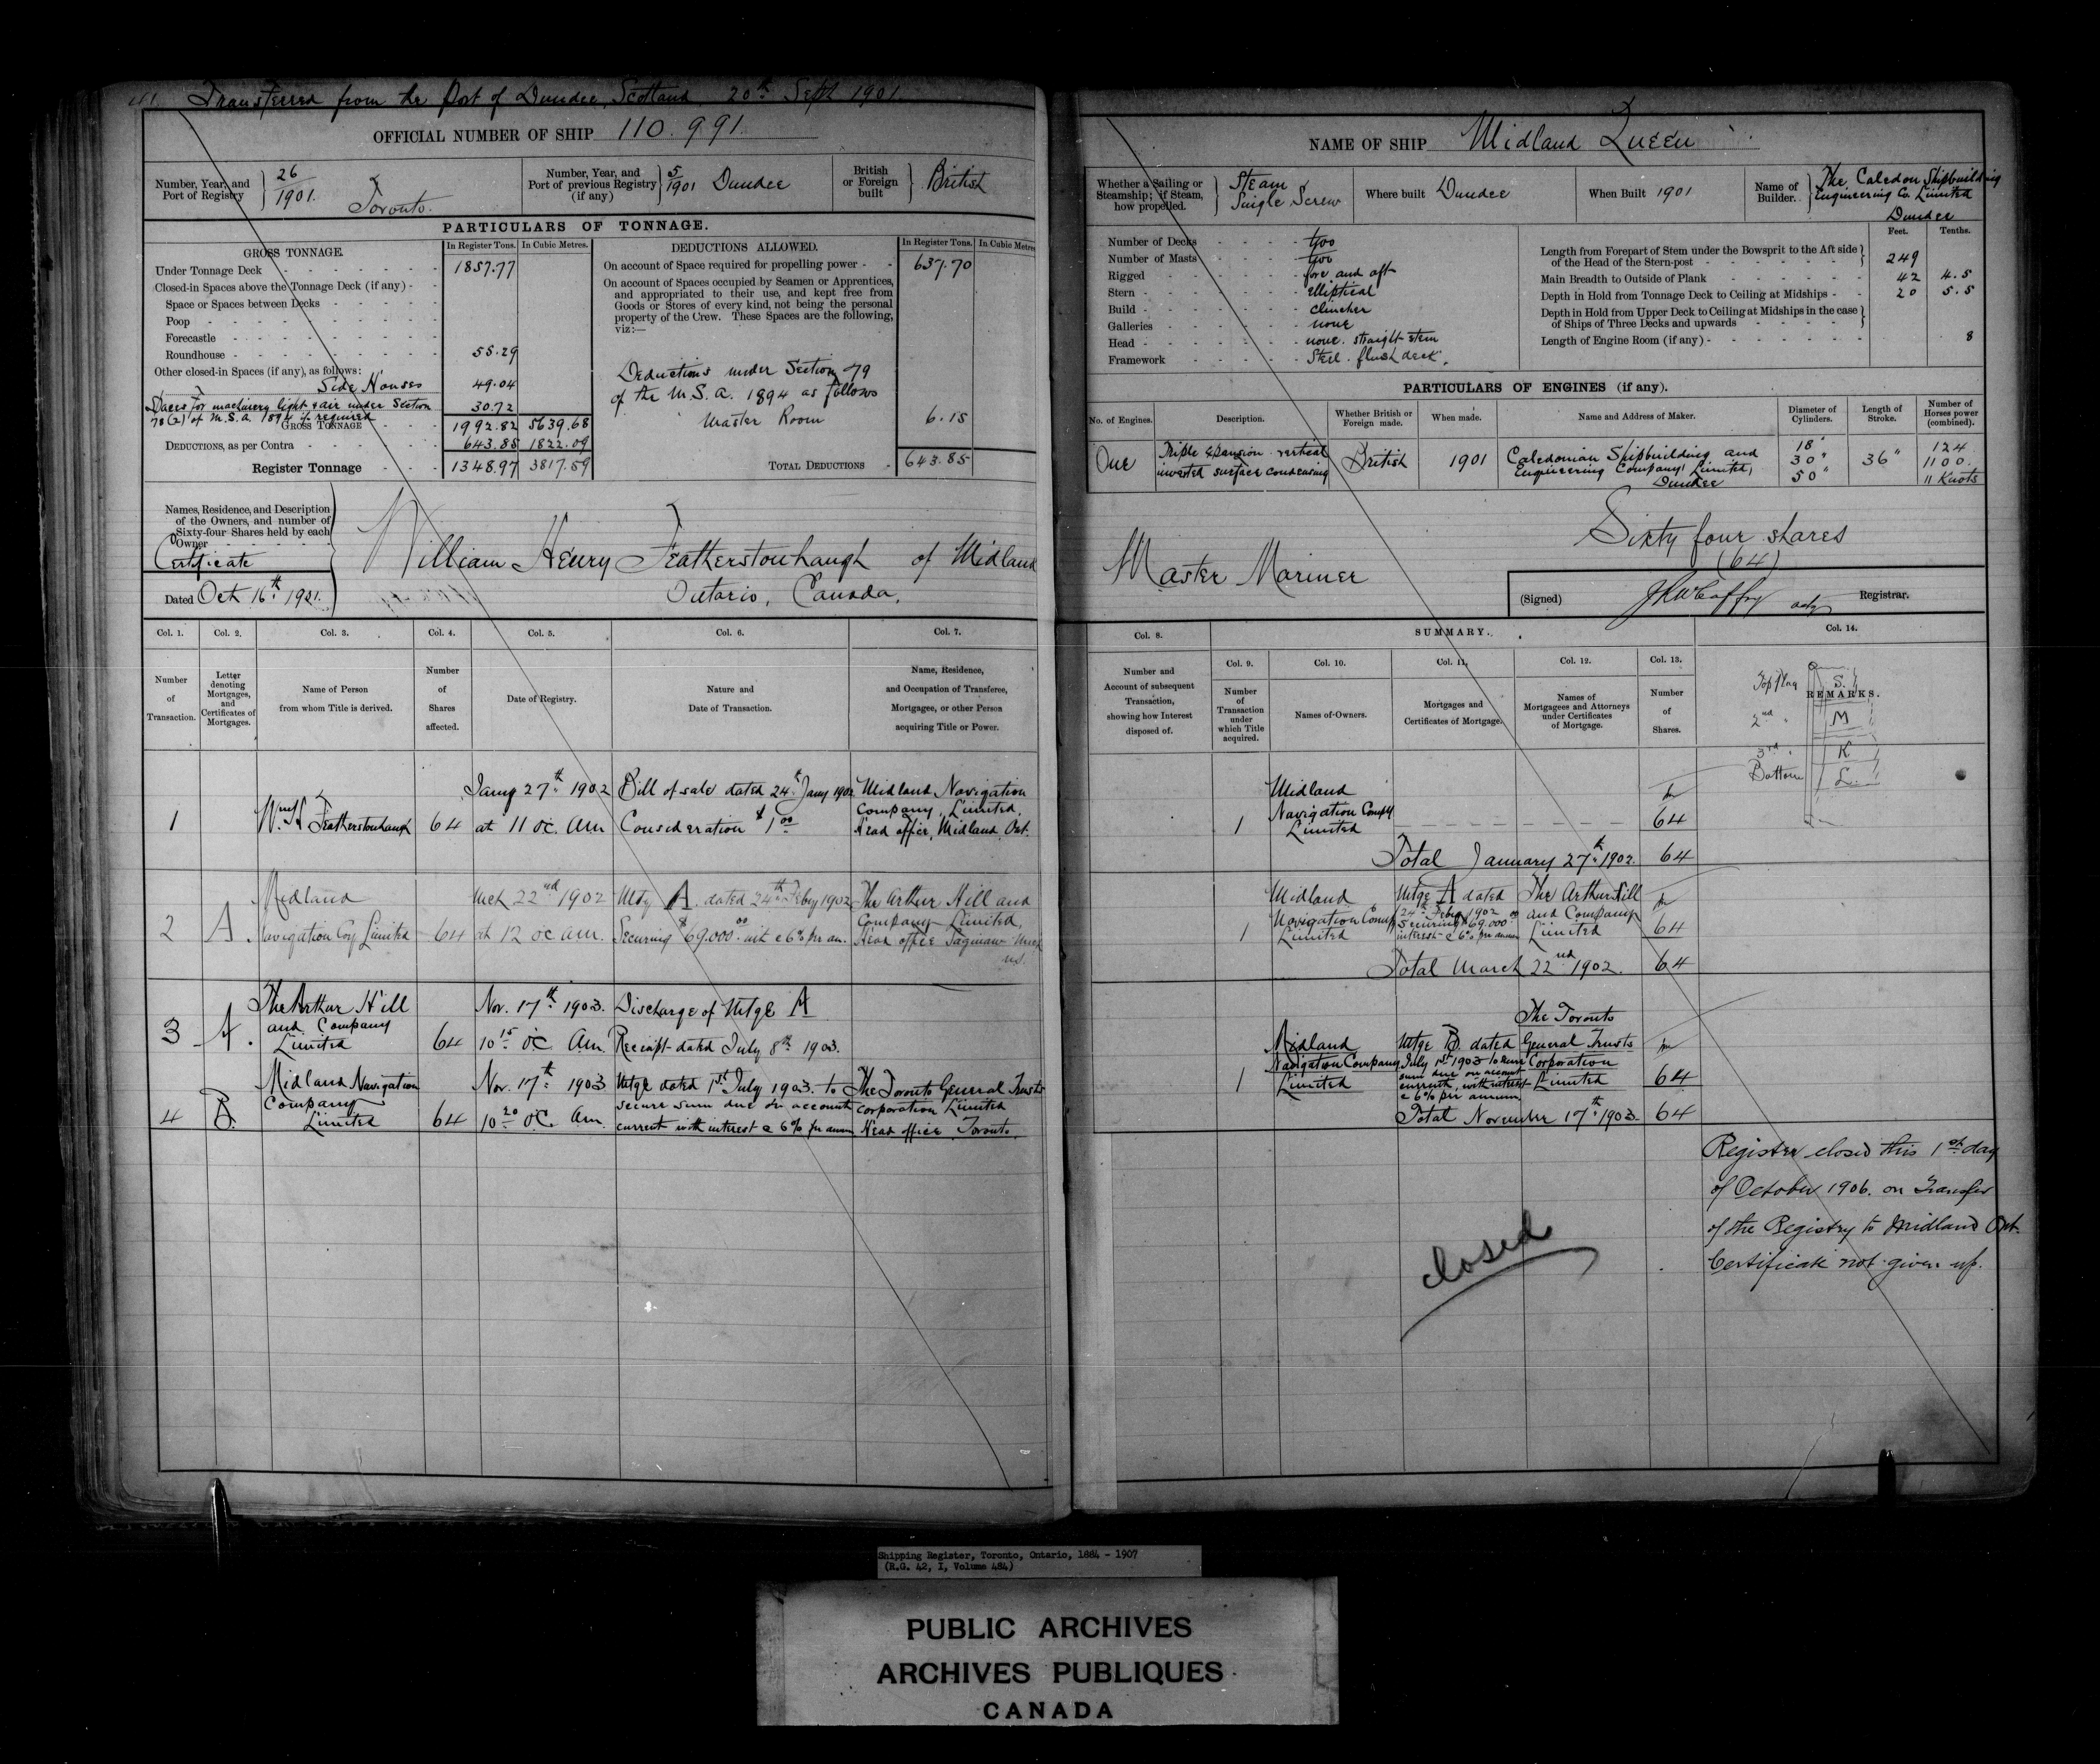 Transferred from the Port of Dundee, Scotland 20th Sept 1901.
OFFICIAL NUMBER OF SHIP 110.991
Number, Year, and Port of Registry 26/1901. Toronto.
Number, Year, and Port of previous Registry (if any) 5/1901 Dundee
British or Foreign built British
PARTICULARS OF TONNAGE.
GROSS TONNAGE. In Register Tons. In Cubic Metres.
Under Tonnage Deck 1857.77
Closed-in Spaces above the Tonnage Deck (if any)
Space or Spaces between Decks
Poop
Forecastle
Roundhouse 55.29
Other closed-in Spaces (if any), as follows:
Side Houses 49.04
Spaces for machinery light & air under Section 30.72
78(2) of M.S.A. 1894 if required
GROSS TONNAGE 1992.82 5639.68
DEDUCTIONS, as per Contra 643.85 1822.09
Register Tonnage 1348.97 3817.59
DEDUCTIONS ALLOWED. In Register Tons. In Cubic Metres
On account of Space required for propelling power 637.70
On account of Spaces occupied by Seamen or Apprentices,
and appropriated to their use, and kept free from
Goods or Stores of every kind, not being the personal
property of the Crew. These Spaces are the following,
viz:—
Deductions under Section 79
of the M.S.A. 1894 as follows
Master Room 6.15
TOTAL DEDUCTIONS 643.85
Names, Residence, and Description
of the Owners, and number of
Sixty-four Shares held by each
Owner
Certificate
Dated Oct 16th 1901.
William Henry Featherstonhaugh of Midland
Ontario, Canada.
Col. 1. Col. 2. Col. 3. Col. 4. Col. 5. Col. 6. Col. 7.
Number of Transaction.
Letter denoting Mortgages, and Certificates of Mortgages.
Name of Person from whom Title is derived.
Number of Shares affected.
Date of Registry.
Nature and Date of Transaction.
Name, Residence, and Occupation of Transferee, Mortgagee, or other Person acquiring Title or Power.
1 Wm H Featherstonhaugh 64
Jany 27th 1902
at 11 oc. Am
Bill of sale dated 24th Jany 1902
Consideration $1.00
Midland Navigation
Company, Limited,
Head office, Midland, Ont.
2 A.
Midland
Navigation Coy Limited 64
Mch 22nd 1902
at 12 oc am.
Mtg A. dated 24th Feby 1902
Securing $69.000.00 with @ 6% per an.
The Arthur Hill and
Company Limited,
Head office Saginaw Mich
U.S.
3 A.
The Arthur Hill
and Company
Limited 64
Nov. 17th 1903.
10 15 oC Am
Discharge of Mtge A
Receipt dated July 8th 1903.
4 B.
Midland Navigation
Company
Limited 64
Nov. 17th 1903
10 20 oC. Am.
Mtge dated 1st July 1903. to
secure sum due on account
current with interest @ 6% per annum
The Toronto General Trusts
Corporation Limited
Head office, Toronto.
NAME OF SHIP Midland Queen
Whether a Sailing or Steamship; if Steam, how propelled. Steam Single Screw
Where built Dundee
When Built 1901
Name of Builder. The Caledon Shipbuilding
Engineering Co. Limited
Dundee
Number of Decks two
Number of Masts two
Rigged fore and aft
Stern elliptical
Build clincher
Galleries none
Head none. straight stem
Framework Steel. flush deck.
Feet. Tenths.
Length from Forepart of Stem under the Bowsprit to the Aft side
of the Head of the Stern-post 249
Main Breadth to Outside of Plank 42 4.5
Depth in Hold from Tonnage Deck to Ceiling at Midships 20 5.5
Depth in Hold from Upper Deck to Ceiling at Midships in the case
of Ships of Three Decks and upwards
Length of Engine Room (if any) 8
PARTICULARS OF ENGINES (if any).
No. of Engines. Description. Whether British or Foreign made. When made. Name and Address of Maker. Diameter of Cylinders. Length of Stroke. Number of Horses power (combined).
One
Triple Expansion vertical
inverted surface condensing
British 1901
Caledonian Shipbuilding and
Engineering Company, Limited,
Dundee
18"
30"
50"
36"
124
1100.
11 Knots
Sixty four shares
(64)
Master Mariner
(Signed) actg Registrar.
Col. 8. SUMMARY. Col. 14.
Col. 9. Col. 10. Col. 11. Col. 12. Col. 13.
Number and Account of subsequent Transaction, showing how Interest disposed of.
Number of Transaction under which Title acquired.
Names of Owners.
Mortgages and Certificates of Mortgage.
Names of Mortgagees and Attorneys under Certificates of Mortgage.
Number of Shares.
REMARKS.
Top flag S.
2nd " M
3rd " K
Bottom L.
1
Midland
Navigation Compy
Limited
64
Total January 27th 1902. 64
1
Midland
Navigation Compy
Limited
Mtge A dated
24th Feby 1902
Securing $69.000.00
interest @ 6% per annum
The Arthur Hill
and Company
Limited
64
Total March 22nd 1902. 64
1
Midland
Navigation Company
Limited
Mtge B. dated
July 1st 1903 to secure
sum due on account
current, with interest
@ 6% per annum
The Toronto
General Trusts
Corporation
Limited
64
Total November 17th 1903. 64
Register closed this 1st day
of October 1906. on Transfer
of the Registry to Midland Ont.
Certificate not given up.
closed
Shipping Register, Toronto, Ontario, 1884 - 1907
(R.G. 42, I, Volume 484)
PUBLIC ARCHIVES
ARCHIVES PUBLIQUES
CANADA